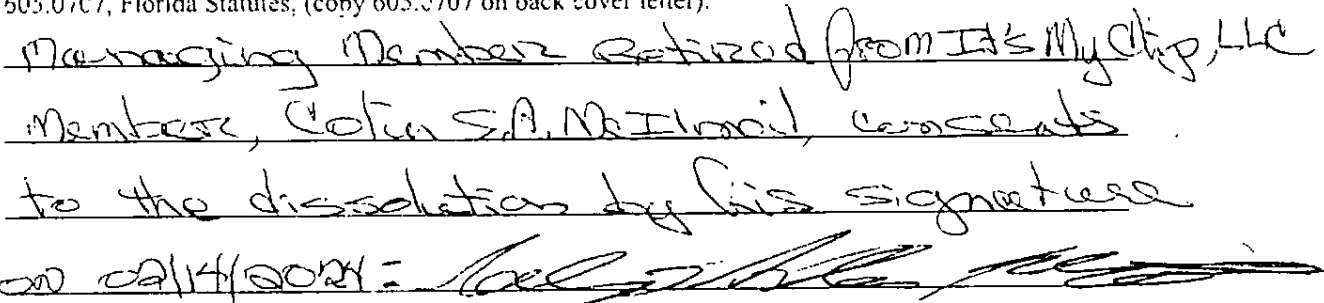 605.0707, Florida Statutes, (copy 605.0707 on back cover letter).
Managing Member Retired from It's My Clip, LLC
Member, Colin S.A. McIlmoil, consents
to the dissolution by his signature
on 02/14/2024 -